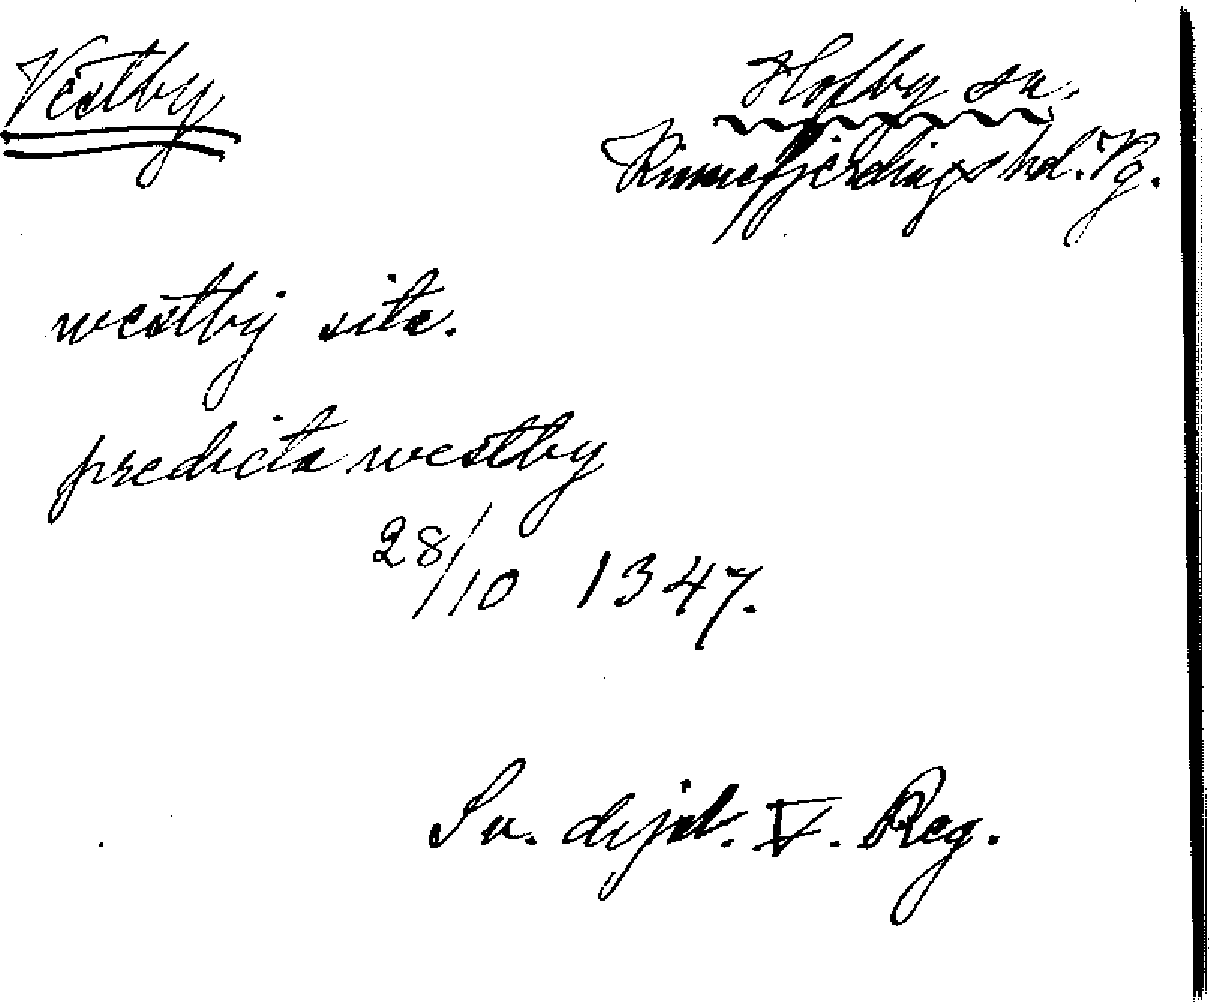 Vestby
Holby sn.
Kinnefjerdings hd. Vg.
westby sita.
predicta westby
28/10 1347.
Sv. dipl. V. Reg.